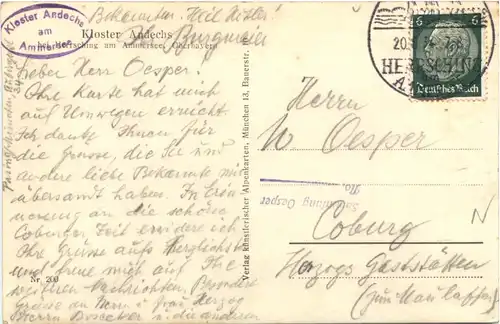 Kloster Andechs
am
Ammersee
Bekannten. Heil Hitler!
Burgmeier
Kloster Andechs
bei Herrsching am Ammersee, Oberbayern
Lieben Herr Oesper.
Ihre Karte hat mich
auf Umwegen erreicht.
Ich danke Ihnen für
die Grüsse, die Sie und
andere liebe Bekannte mir
übersandt haben. In Erin-
nerung an die schöne
Coburger Zeit erwidere ich
Ihre Grüsse aufs Herzlichste
und freue mich auf Ihre
weiteren Nachrichten. Besondere
Grüsse an Herrn u. Frau Herzog
Herrn u. die anderen
Nr. 200
Verlag künstlerischer Alpenkarten, München 13, Bauerstr.
20.
HERRSCHING
6 6
Deutsches Reich
Herrn
W. Oesper
Sammlung Oesper
Coburg
Herzogs Gaststätten
N